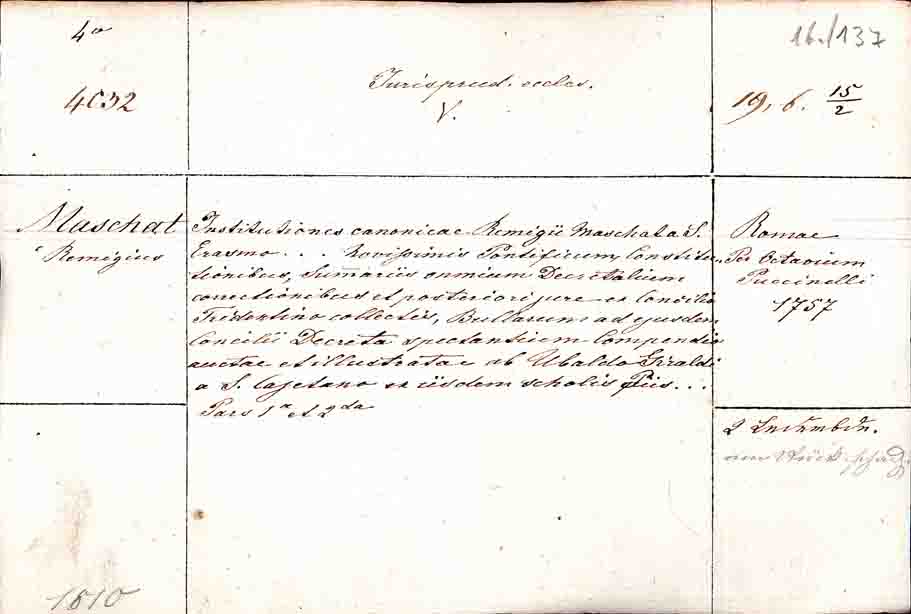 4o
4032
Jurisprud. eccles.
V.
16./137
19, 6. 15/2
Maschat
Remigius
Institutiones canonicae Remigii Maschat a S.
Erasmo . . . novissimis Pontificum Constitu-
tionibus, Summariis omnium Decretalium
connectionibus et posteriori jure ex Concilio
Tridentino collectis, Bullarum ad ejusdem
Concilii Decreta spectantium Compendio
auctae et illustratae ab Ubaldo Giraldi
a S. Cajetano ex iisdem scholis Piis . . .
Pars 1a et 2da
Romae
Per Octavium
Puccinelli
1757
2
am Rück
1810